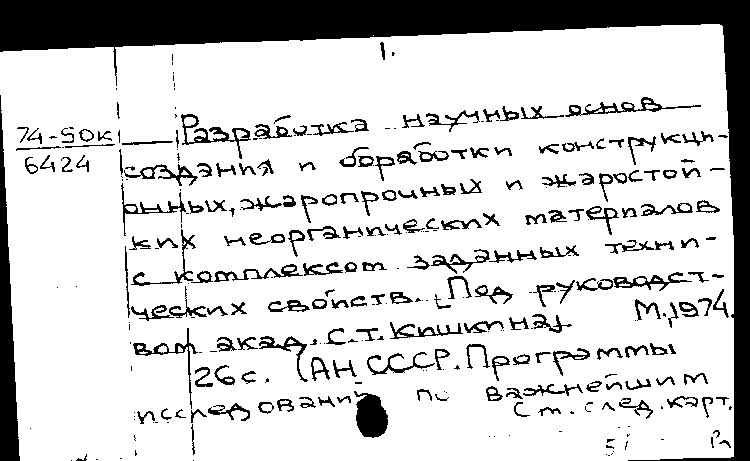 1.
74-50К
6424
Разработка научных основ
создания и обработки конструкци-
онных, жаропрочных и жаростой-
ких неорганических материалов
с комплексом заданных техни-
ческих свойств. [Под руководст-
вом акад. С.Т. Кишкина]. М., 1974.
26с. (АН СССР. Программы
исследований по важнейшим
См. след. карт.